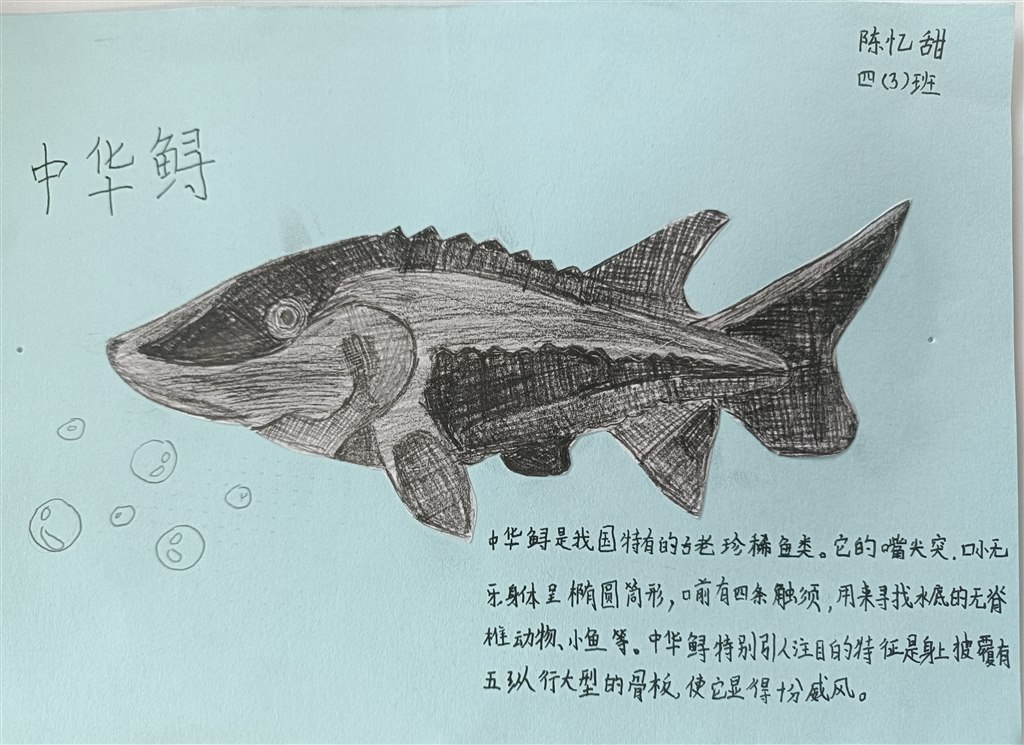 陈忆甜
四(3)班
中华鲟
中华鲟是我国特有的古老珍稀鱼类。它的嘴尖突,口小无
牙身体呈椭圆筒形,口前有四条触须,用来寻找水底的无脊
椎动物、小鱼等。中华鲟特别引人注目的特征是身上披覆有
五纵行大型的骨板,使它显得十分威风。